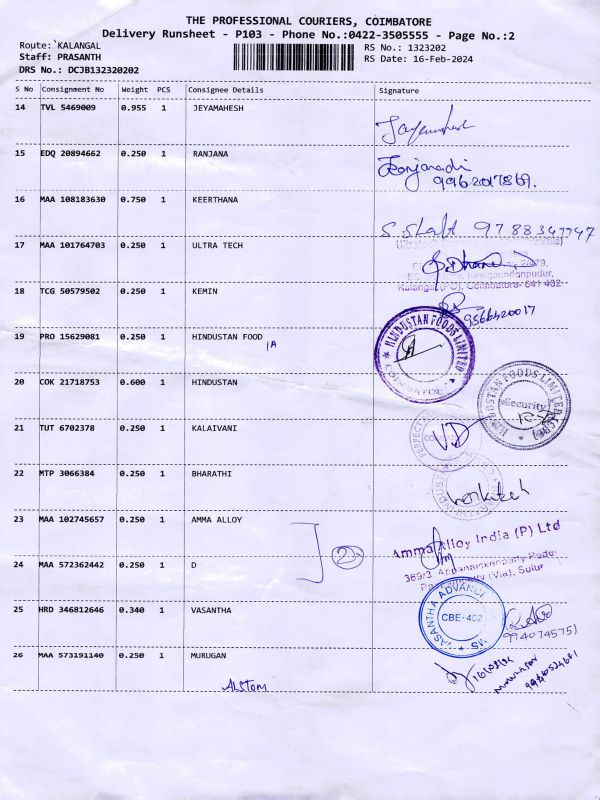 THE PROFESSIONAL COURIERS, COIMBATORE
Delivery Runsheet - P103 - Phone No.:0422-3505555 - Page No.:2
Route: KALANGAL
RS No.: 1323202
Staff: PRASANTH
RS Date: 16-Feb-2024
DRS No.: DCJB132320202
S No Consignment No Weight PCS Consignee Details Signature
14 TVL 5469009 0.955 1 JEYAMAHESH
15 EDQ 20894662 0.250 1 RANJANA
9962017869.
16 MAA 108183630 0.750 1 KEERTHANA
9788347747
17 MAA 101764703 0.250 1 ULTRA TECH
Coimbatore- 641 402
18 TCG 50579502 0.250 1 KEMIN
9566420017
19 PRO 15629081 0.250 1 HINDUSTAN FOOD
1A
HINDUSTAN FOODS LIMITED
20 COK 21718753 0.600 1 HINDUSTAN
HINDUSTAN FOODS LIMITED
Security
21 TUT 6702378 0.250 1 KALAIVANI
VD
22 MTP 3066384 0.250 1 BHARATHI
23 MAA 102745657 0.250 1 AMMA ALLOY
2
Amma Alloy India (P) Ltd
24 MAA 572362442 0.250 1 D
389/3
(Via), Sulur
25 HRD 346812646 0.340 1 VASANTHA
VASANTHA ADVANCE
CBE-402
MS
9940745751
26 MAA 573191140 0.250 1 MURUGAN
ALSTOM